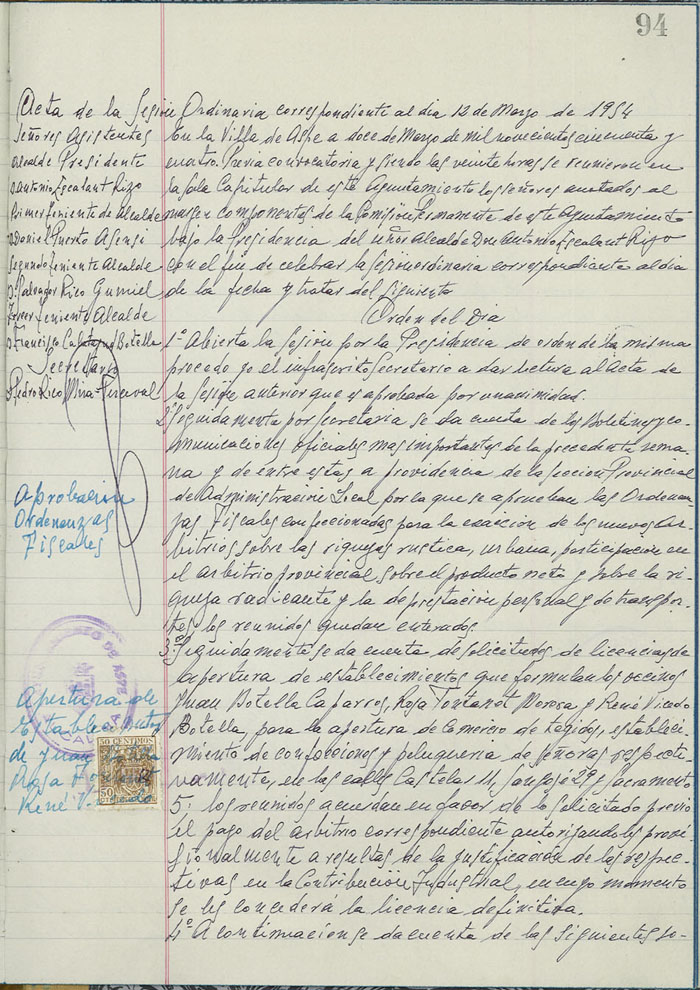 94
Acta de la Sesión Ordinaria correspondiente al dia 12 de Marzo de 1954
Señores Asistentes
Alcalde Presidente
D. Antonio Escalant Rizo
Primer Teniente de Alcalde
D. Daniel Puerto Asensi
Segundo Teniente Alcalde
D. Salvador Rico Gumiel
Tercer Teniente Alcalde
D. Francisco Calatayud Botella
Secretario
D. Pedro Rico Mira-Perceval
En la Villa de Aspe a doce de Marzo de mil novecientos cincuenta y
cuatro. Previa convocatoria y siendo las veinte horas se reunieron en
la Sala Capitular de este Ayuntamiento los señores anotados al
margen componentes de la Comisión Permanente de este Ayuntamiento
bajo la Presidencia del señor Alcalde Don Antonio Escalant Rizo
con el fin de celebrar la Sesión ordinaria correspondiente al dia
de la fecha y tratar del siguiente
Orden del Dia
1º Abierta la Sesión por la Presidencia de orden de la misma
procedo yo el infrascrito Secretario a dar lectura al Acta de
la Sesión anterior que es aprobada por unanimidad.
2º Seguidamente por Secretaria se da cuenta de los Boletines y co-
municaciones oficiales mas importantes de la precedente sema-
na y de entre estas a providencia de la Seccion Provincial
de Administración Local por la que se aprueban las Ordenan-
zas Fiscales confeccionadas para la exacción de los nuevos Ar-
bitrios sobre las riquezas rustica, urbana, participación en
el arbitrio provincial, sobre el producto neto y sobre la ri-
queza radicante y la de prestación personal y de transpor-
tes, los reunidos quedan enterados.
Aprobación
Ordenanzas
Fiscales
3º Seguidamente se da cuenta de solicitudes de licencias de
apertura de establecimientos que formulan los vecinos
Juan Botella Caparros, Rosa Tontanot Morosa y René Vicedo
Botella, para la apertura de Comercio de tegidos, estableci-
miento de confecciones y peluqueria de señoras respecti-
vamente, en las calles Castelar 11, San José 29 y Sacramento
5. los reunidos acuerdan en favor de lo solicitado previo
el pago del arbitrio correspondiente autorizandoles provi-
sionalmente a resultas de la justificación de las respec-
tivas en la Contribución Industrial, en cuyo momento
se les concederá la licencia definitiva.
Apertura de
Establecimientos
de Juan
Rosa
René
50 CENTIMOS
50
4º A continuacion se da cuenta de las siguientes so-